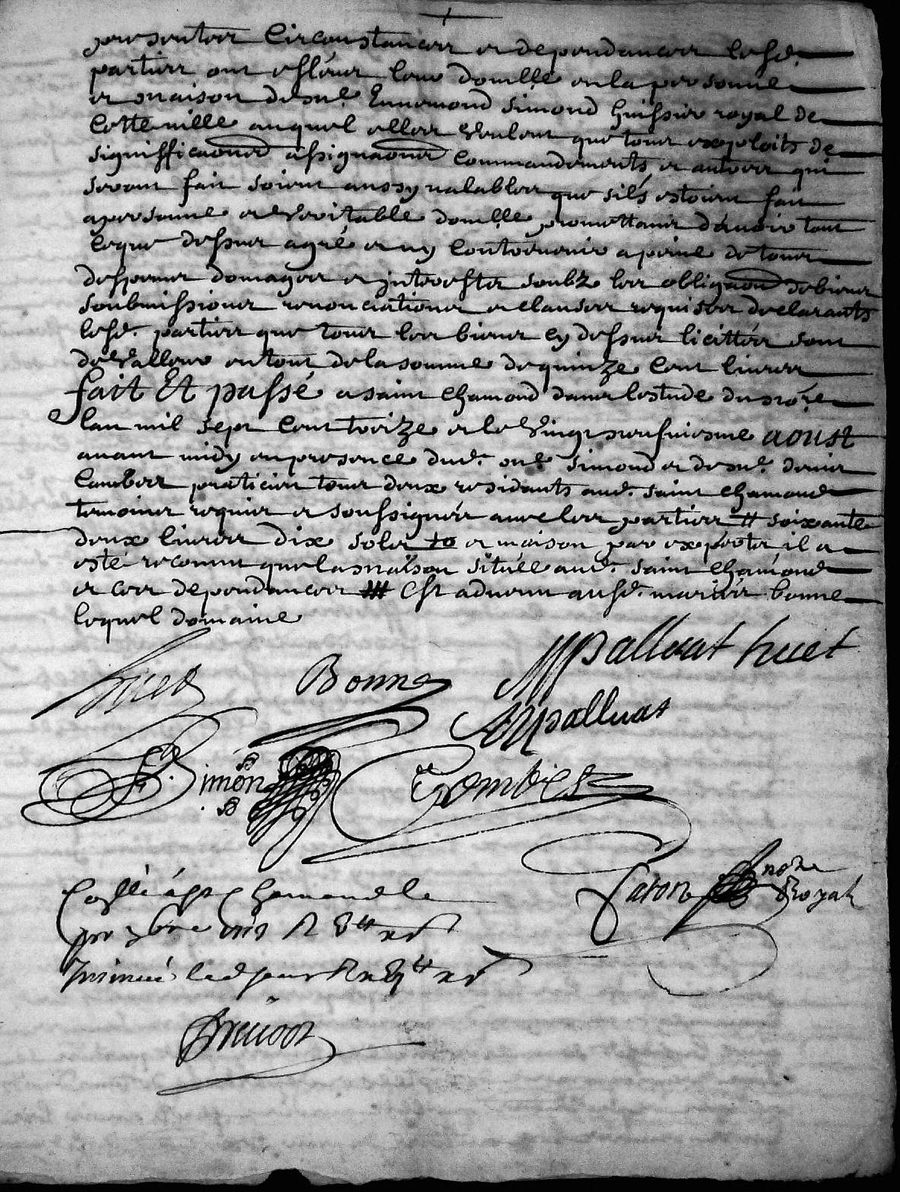 presentes circonstances et dependances lesd.
parties ont esleut leur domille en la personne
et maison de me. Ennemond Simond huissier royal de
cette ville auquel elles veulent que tous exploits de
signiffications assignaons commandements et autres qui
seront fait soient aussy valables que sils estoient fait
a personne et veritable domille promettants davoir tout
ceque dessus agré et ny contrevenir a peine de tous
despens domages et interestz soubz les obligaon de biens
soubmissions renonciations et clauses requises declarants
lesd. parties que tous les biens cy dessus licittés sont
de valleur en tout de la somme de quinze cent livres
fait Et passé a saint chamond dans lestude du nore
lan mil sept cent treize et le vingt neufviesme aoust
avant midy en presence dud. me simond et de me. denis
combes praticien tous deux residants aud. saint chamond
temoins requis et soussignés avec les parties # soixante
deux livres dix sols et maison par exprés il a
esté reconnu que la maison située aud. saint chamond
et ces dependances ### est advenu ausd. mariés bonne
lequel domaine
huet Bonne MPalluat huet
MPalluat
Simon Combes
Caron nore Royal
Collé a st chamond le
Insinué led jour